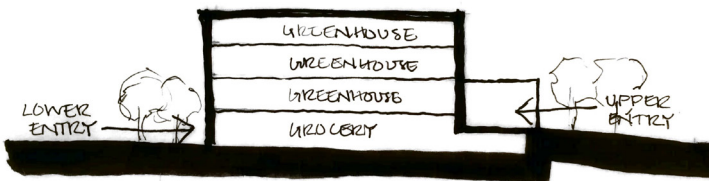 GREENHOUSE
GREENHOUSE
GREENHOUSE
GROCERY
LOWER
ENTRY
UPPER
ENTRY